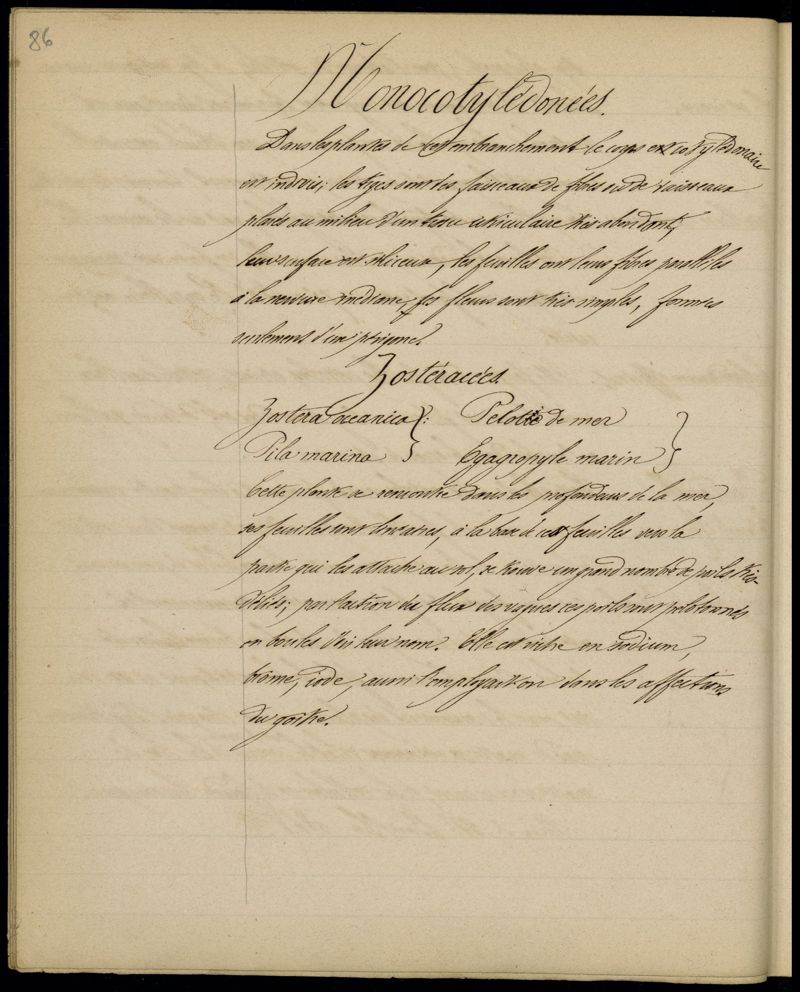 86
Monocotylédonées.
Dans les plantes de cet embranchement le corps cotylédonaire
est indivis; les tiges sont des faisceaux de fibres ou de vaisseaux
placés au milieu d'un tissu utriculaire très abondant,
leur surface est siliceux, les feuilles ont leurs fibres parallèles
à la nervure médiane, les fleurs sont très simples, formées
seulement d'un périgone.
Zostéracées.
Zostera oceanica}: Pelote de mer
Pila marina } Egagropyle marin }
Cette plante se rencontre dans les profondeurs de la mer,
ses feuilles sont linéaires, à la base de ces feuilles vers la
partie qui les attache au sol, se trouve un grand nombre de poils très
déliés; par l'action du flux des vagues ces poils sont pelotonnés
en boules d'où leur nom. Elle est riche en sodium,
brome, iode, aussi l'employait-on dans les affections
du goître.